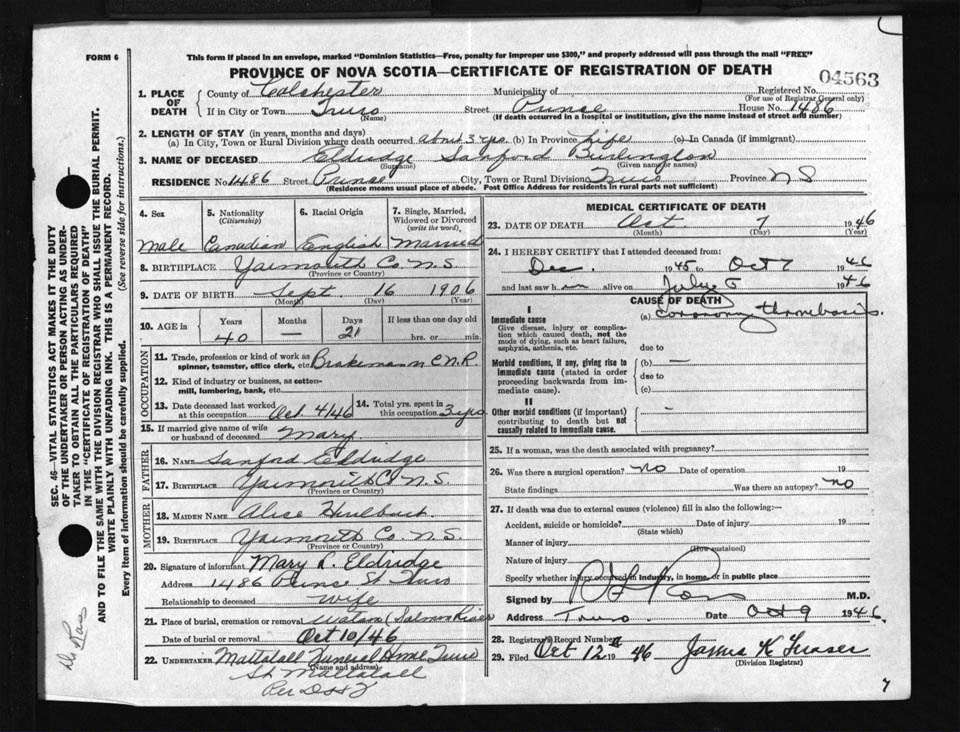 FORM 6
This form if placed in an envelope, marked "Dominion Statistics—Free, penalty for improper use $300," and properly addressed will pass through the mail "FREE"
PROVINCE OF NOVA SCOTIA—CERTIFICATE OF REGISTRATION OF DEATH
04563
1. PLACE OF DEATH
County of Colchester Municipality of Registered No.
(For use of Registrar General only)
If in City or Town Truro Street Prince House No. 1486
(Name) (If death occurred in a hospital or institution, give the name instead of street and number)
2. LENGTH OF STAY (in years, months and days)
(a) In City, Town or Rural Division where death occurred about 3 yrs. (b) In Province Life (c) In Canada (if immigrant)
3. NAME OF DECEASED Eldridge Sanford Burlington
(Surname) (Given name or names)
RESIDENCE No. 1486 Street Prince City, Town or Rural Division Truro Province N S
(Residence means usual place of abode. Post Office Address for residents in rural parts not sufficient)
4. Sex 5. Nationality (Citizenship) 6. Racial Origin 7. Single, Married, Widowed or Divorced (write the word)
Male Canadian English Married
8. BIRTHPLACE Yarmouth Co. N.S.
(Province or Country)
9. DATE OF BIRTH Sept. 16 1906
(Month) (Day) (Year)
10. AGE in Years Months Days If less than one day old
40 — 21 hrs. or min.
OCCUPATION
11. Trade, profession or kind of work as spinner, teamster, office clerk, etc. Brakeman C.N.R.
12. Kind of industry or business, as cotton-mill, lumbering, bank, etc.
13. Date deceased last worked at this occupation Oct 4/46 14. Total yrs. spent in this occupation 3 yrs
15. If married give name of wife or husband of deceased Mary
FATHER
16. NAME Sanford Eldridge
17. BIRTHPLACE Yarmouth Co. N.S.
(Province or Country)
MOTHER
18. MAIDEN NAME Alice Hurlburt
19. BIRTHPLACE Yarmouth Co. N.S.
(Province or Country)
20. Signature of informant Mary L. Eldridge
Address 1486 Prince St Truro
Relationship to deceased Wife
21. Place of burial, cremation or removal (Salmon River
Date of burial or removal Oct 10/46
22. UNDERTAKER Mattatall Funeral Home Truro
(Name and address)
Mattatall
Per
MEDICAL CERTIFICATE OF DEATH
23. DATE OF DEATH Oct. 7 1946
(Month) (Day) (Year)
24. I HEREBY CERTIFY that I attended deceased from:
Dec. 1945 to Oct 7 1946
and last saw him alive on July 5 1946
CAUSE OF DEATH
I
Immediate cause
Give disease, injury or complication which caused death, not the mode of dying, such as heart failure, asphyxia, asthenia, etc.
(a) coronary thrombosis.
due to
Morbid conditions, if any, giving rise to immediate cause (stated in order proceeding backwards from immediate cause).
(b) —
due to
(c)
II
Other morbid conditions (if important) contributing to death but not causally related to immediate cause.
—
25. If a woman, was the death associated with pregnancy?
26. Was there a surgical operation? no Date of operation 19
State findings Was there an autopsy? no
27. If death was due to external causes (violence) fill in also the following:—
Accident, suicide or homicide? Date of injury 19
(State which)
Manner of injury
(How sustained)
Nature of injury
Specify whether injury occurred in industry, in home, or in public place
Signed by M.D.
Address Truro. Date Oct 9 1946
28. Registrar's Record Number
29. Filed Oct 12 1946 James K Fraser
(Division Registrar)
7
SEC. 46—VITAL STATISTICS ACT MAKES IT THE DUTY OF THE UNDERTAKER OR PERSON ACTING AS UNDERTAKER TO OBTAIN ALL THE PARTICULARS REQUIRED IN THE "CERTIFICATE OF REGISTRATION OF DEATH" AND TO FILE THE SAME WITH THE DIVISION REGISTRAR WHO SHALL ISSUE THE BURIAL PERMIT.
WRITE PLAINLY WITH UNFADING INK. THIS IS A PERMANENT RECORD.
Every item of information should be carefully supplied. (See reverse side for instructions.)